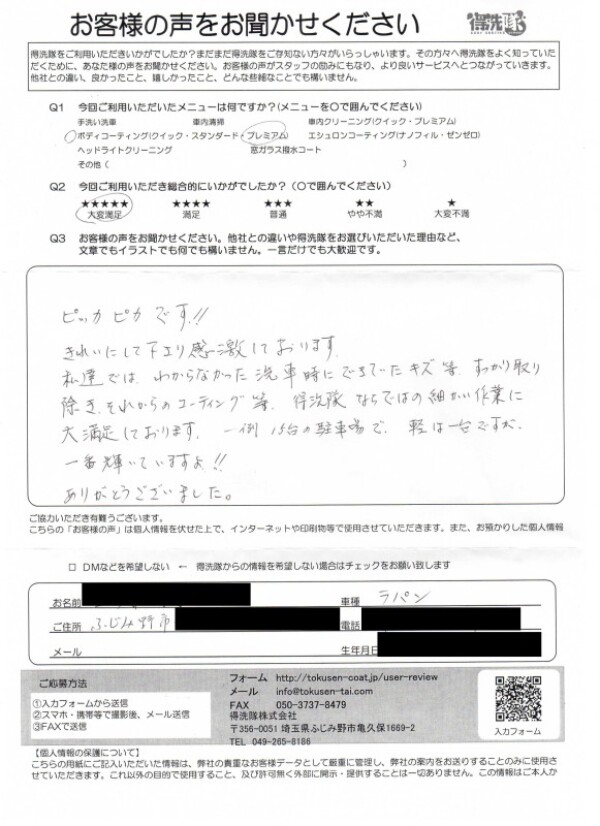 お客様の声をお聞かせください
得洗隊
得洗隊をご利用いただきいかがでしたか？まだまだ得洗隊をご存知ない方々がいらっしゃいます。その方々へ得洗隊をよく知っていた
だくために、あなた様の声をお聞かせください。お客様の声がスタッフの励みにもなり、より良いサービスへとつながっていきます。
他社との違い、良かったこと、嬉しかったこと、どんな些細なことでも構いません。
Q1 今回ご利用いただいたメニューは何ですか？(メニューを〇で囲んでください)
手洗い洗車 車内清掃 車内クリーニング(クイック・プレミアム)
ボディコーティング(クイック・スタンダード・プレミアム) エシュロンコーティング(ナノフィル・ゼンゼロ)
ヘッドライトクリーニング 窓ガラス撥水コート
その他（ ）
Q2 今回ご利用いただき総合的にいかがでしたか？（〇で囲んでください）
★★★★★ ★★★★ ★★★ ★★ ★
大変満足 満足 普通 やや不満 大変不満
Q3 お客様の声をお聞かせください。他社との違いや得洗隊をお選びいただいた理由など、
文章でもイラストでも何でも構いません。一言だけでも大歓迎です。
ピッカピカです!!
きれいにして下さり感激しております。
私達では、わからなかった洗車時にできていたキズ等、すっかり取り
除き、それからのコーティング等、得洗隊ならではの細かい作業に
大満足しております。一例 15台の駐車場で、軽は一台ですが、
一番輝いていますよ!!
ありがとうございました。
ご協力いただき有難うございます。
こちらの「お客様の声」は個人情報を伏せた上で、インターネットや印刷物等で使用させていただきます。また、お預かりした個人情報
□ DMなどを希望しない ← 得洗隊からの情報を希望しない場合はチェックをお願い致します
お名前 車種 ラパン
ご住所 ふじみ野市 電話
メール 生年月日
ご応募方法
①入力フォームから送信
②スマホ・携帯等で撮影後、メール送信
③FAXで送信
フォーム http://tokusen-coat.jp/user-review
メール info@tokusen-tai.com
FAX 050-3737-8479
得洗隊株式会社
〒356-0051 埼玉県ふじみ野市亀久保1669-2
TEL 049-265-8186
入力フォーム
【個人情報の保護について】
こちらの用紙にご記入いただいた情報は、弊社の貴重なお客様データとして厳重に管理し、弊社の案内をお送りすることのみに使用さ
せていただきます。これ以外の目的で使用すること、及び許可無く外部に開示・提供することは一切ありません。この情報はご本人か